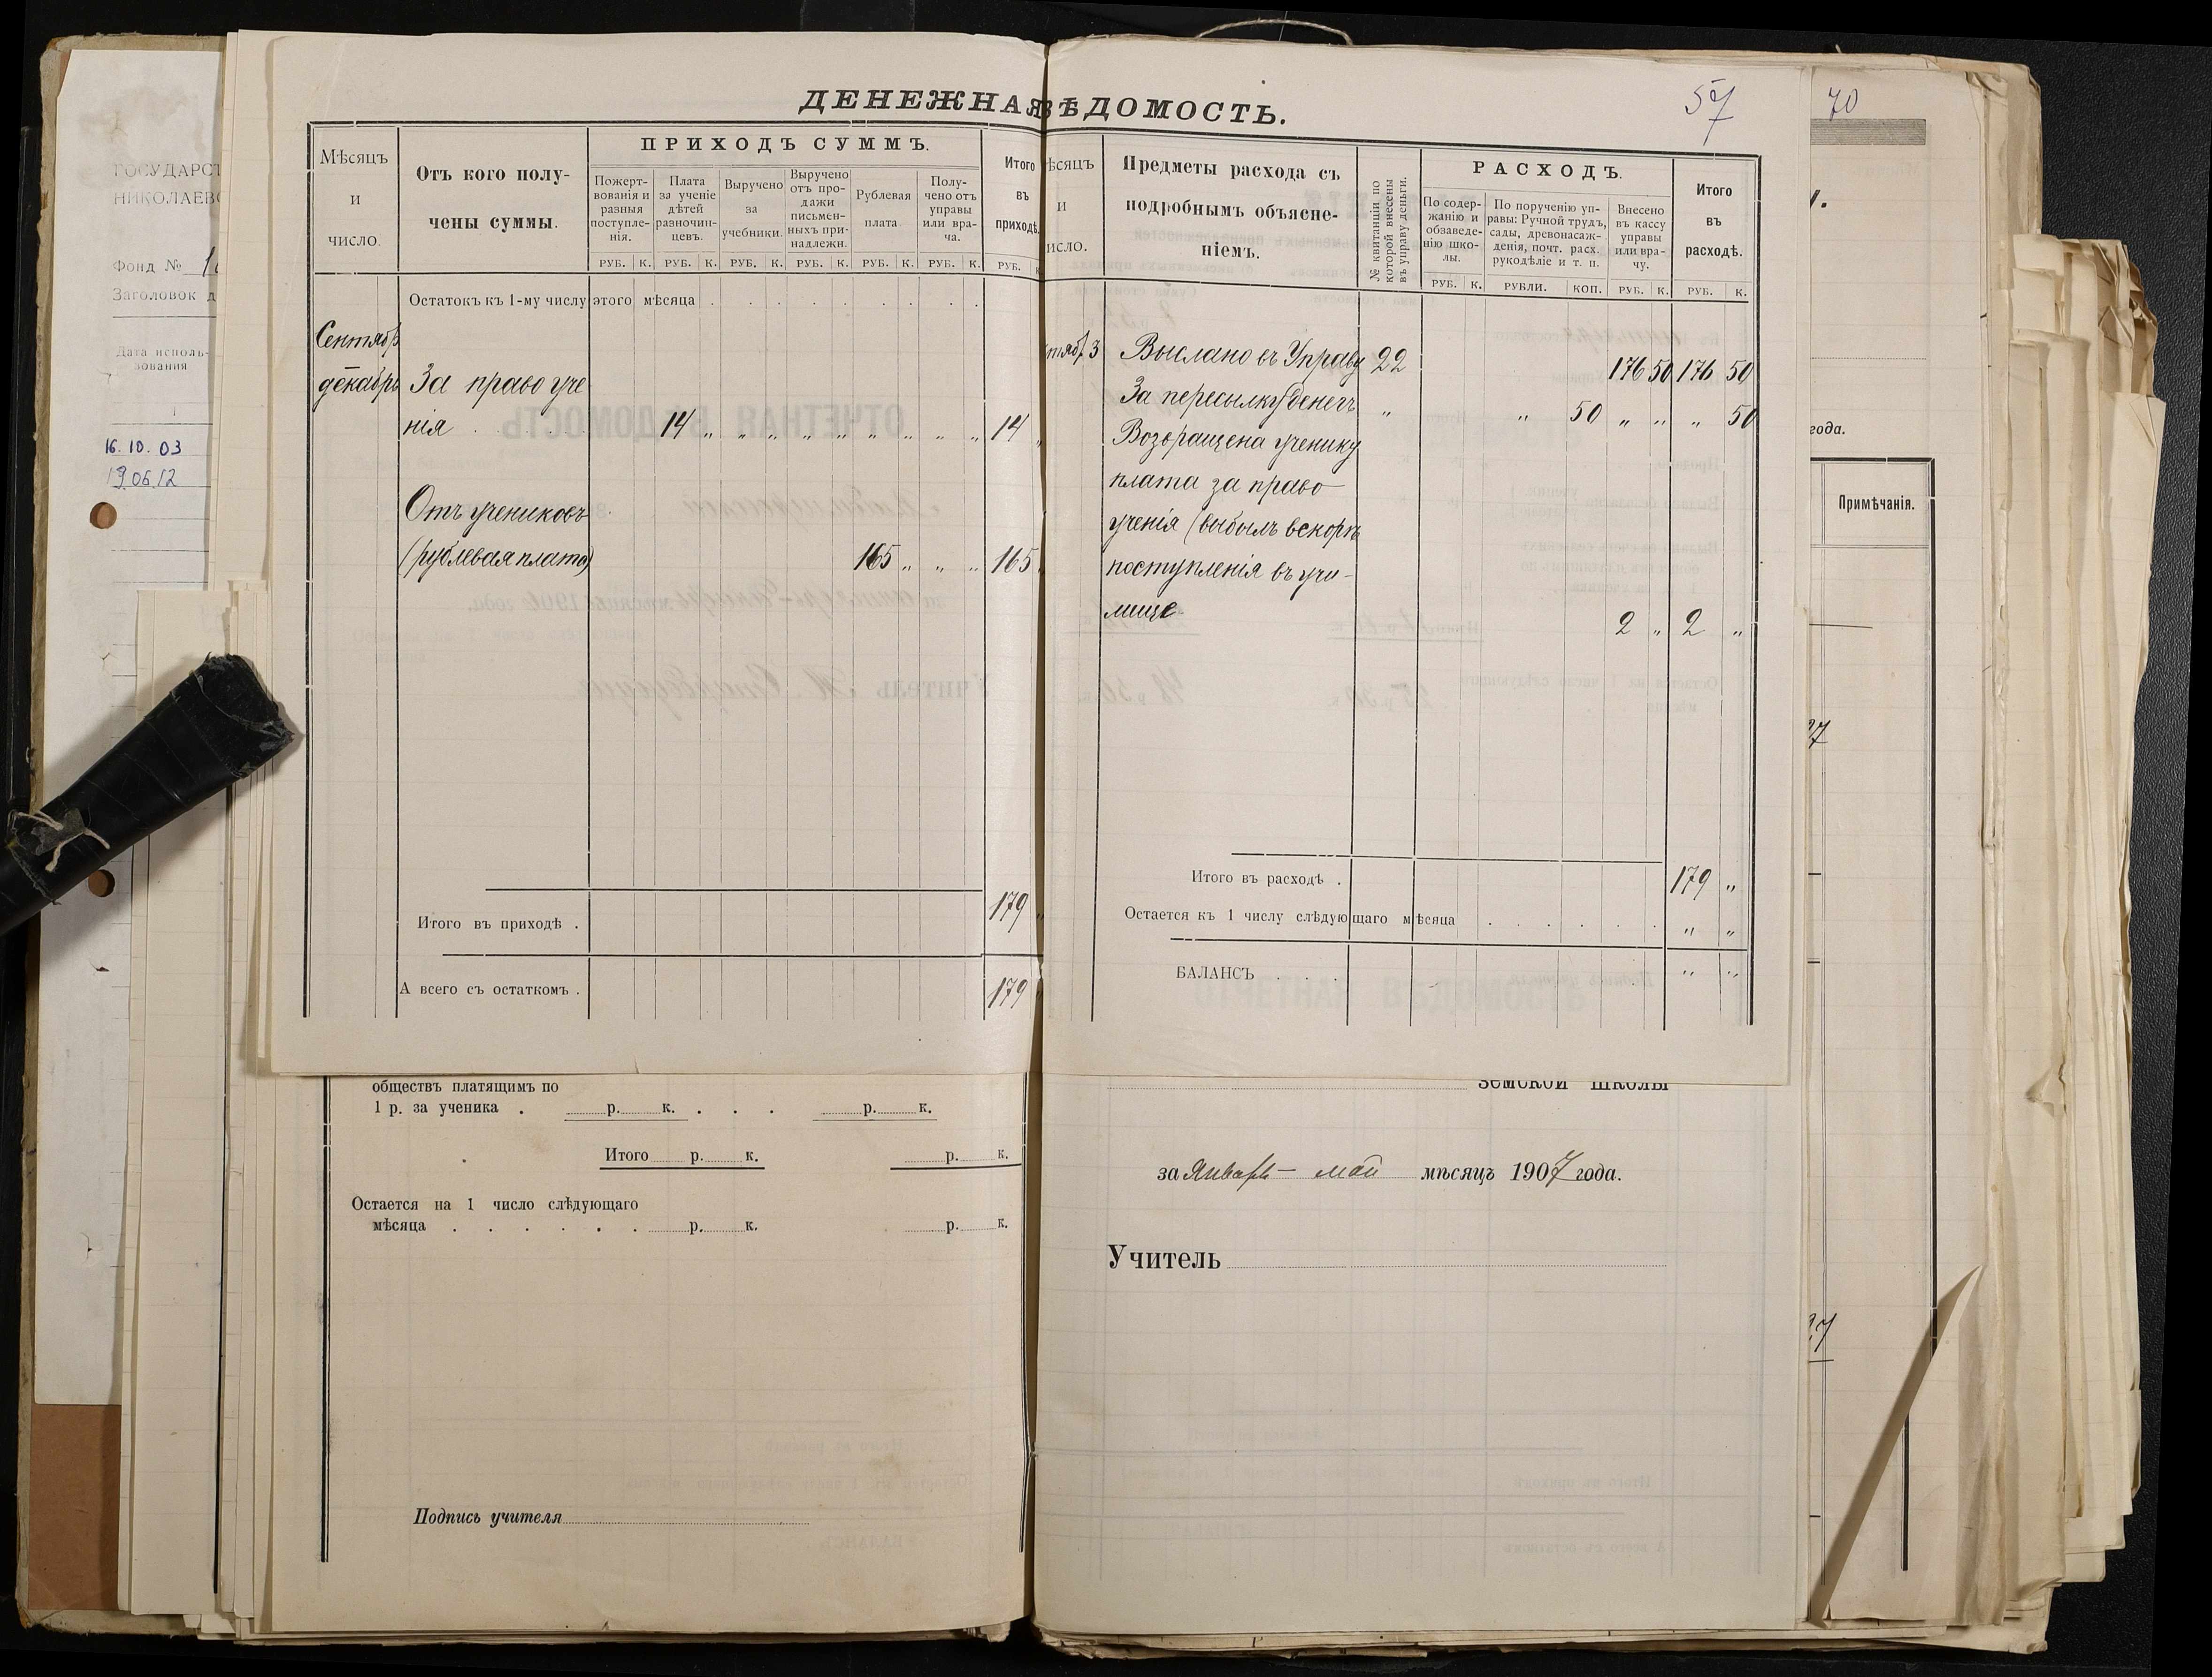 ДЕНЕЖНАЯ ВѢДОМОСТЬ.
57
70
Мѣсяцъ
и
число.
Отъ кого полу-
чены суммы.
ПРИХОДЪ СУММЪ.
Пожерт-
вованія и
разныя
поступле-
нія.
Плата
за ученіе
дѣтей
разночин-
цевъ.
Выручено
за
учебники.
Выручено
отъ про-
дажи
письмен-
ныхъ при-
надлежн.
Рублевая
плата
Полу-
чено отъ
управы
или вра-
ча.
Итого
въ
приходѣ.
РУБ. К. РУБ. К. РУБ. К. РУБ. К. РУБ. К. РУБ. К. РУБ.
Остатокъ къ 1-му числу этого мѣсяца
Сентябр
декабрь За право уче
нія 14 „ „ „ „ „ „ „ „ „ 14 „
Отъ учениковъ
(рублевая плата) 165 „ „ „ 165
179
Итого въ приходѣ .
А всего съ остаткомъ . 179
ѣсяцъ
и
исло.
Предметы расхода съ
подробнымъ объясне-
ніемъ.
№ квитанціи по
которой внесены
въ управу деньги.
РАСХОДЪ.
По содер-
жанію и
обзаведе-
нію шко-
лы.
По порученію уп-
равы: Ручной трудъ,
сады, древонасаж-
денія, почт. расх.
рукодѣліе и т. п.
Внесено
въ кассу
управы
или вра-
чу.
Итого
въ
расходѣ.
РУБ. К. РУБЛИ. КОП. РУБ. К. РУБ. К.
тяб. 3 Выслано въ Управу 22 176 50 176 50
За пересылку денегъ „ „ 50 „ „ „ 50
Возвращена ученику
плата за право
ученія (выбылъ вскорѣ
поступленія въ учи-
лище 2 „ 2 „
Итого въ расходѣ . 179 „
Остается къ 1 числу слѣдующаго мѣсяца . . . . . . „ „
БАЛАНСЪ . . . „ „
обществъ платящимъ по
1 р. за ученика . р. к. . . . р. к.
Итого р. к. р. к.
Остается на 1 число слѣдующаго
мѣсяца . . . . . . р. к. р. к.
Подпись учителя
земской школы
за Январь – май мѣсяцъ 1907 года.
Учитель
ГОСУДАРСТ
НИКОЛАЕВС
Фонд № 1
Заголовок д
Дата исполь-
зования
16.10.03
19.06.12
года.
Примѣчанія.